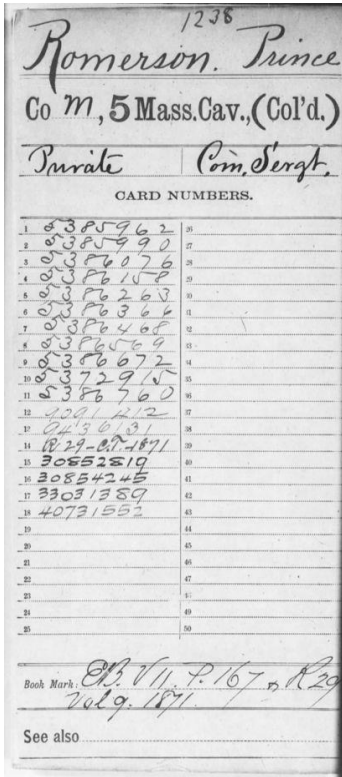 1238
Romerson. Prince
Co M, 5 Mass. Cav., (Col'd.)
Private Com. Sergt.
CARD NUMBERS.
1 5385962 26
2 5385990 27
3 5386076 28
4 5386158 29
5 5386263 30
6 5386366 31
7 5386468 32
8 5386569 33
9 5386672 34
10 5372915 35
11 5386760 36
12 9091412 37
13 9436131 38
14 R. 29-C.T.-1871 39
15 30852819 40
16 30854245 41
17 33031389 42
18 40731552 43
19 44
20 45
21 46
22 47
23 48
24 49
25 50
Book Mark: EB. V 11. P. 167 & R 29
Vol 9. 1871
See also